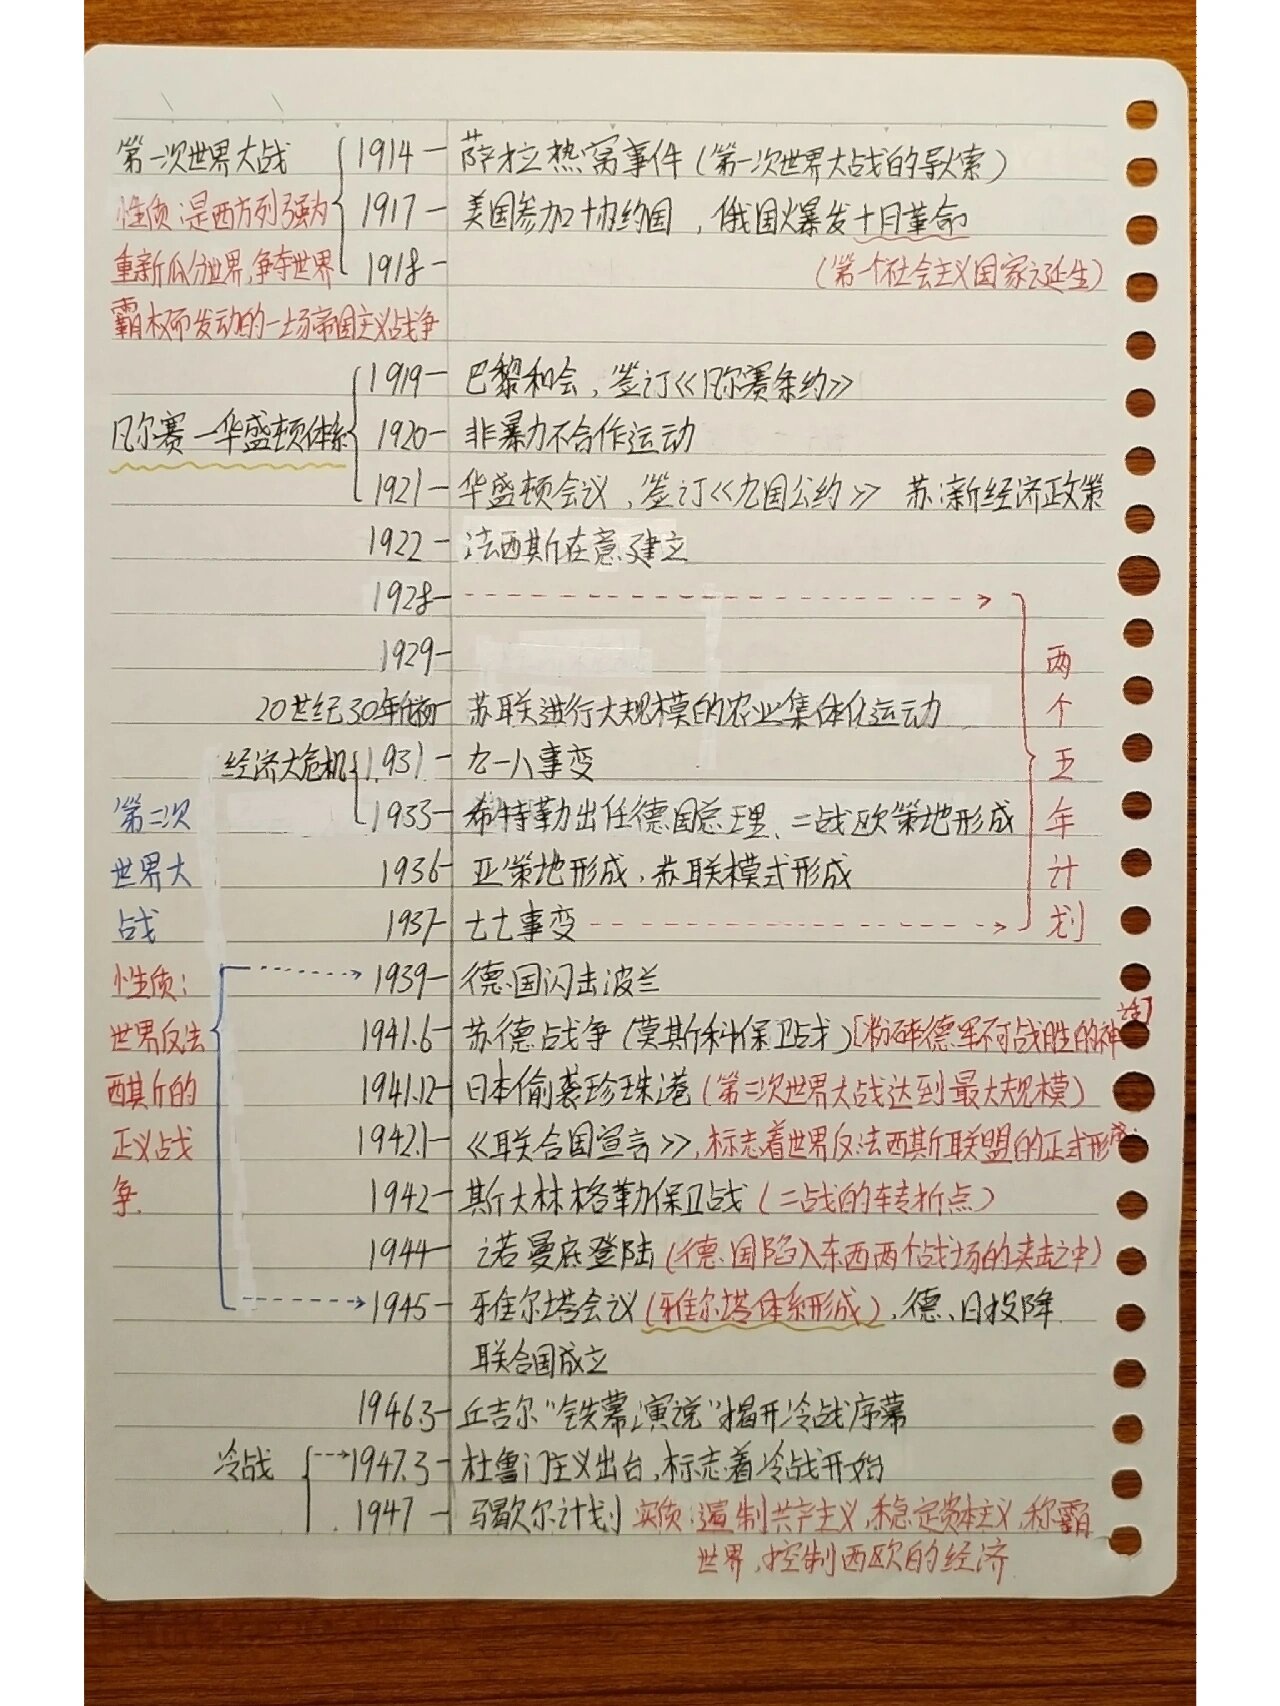 第一次世界大战 1914 — 萨拉热窝事件（第一次世界大战的导火索）
性质：是西方列强为 1917 — 美国参加协约国，俄国爆发十月革命
重新瓜分世界,争夺世界 1918 — （第一个社会主义国家诞生）
霸权而发动的一场帝国主义战争
1919 — 巴黎和会，签订《凡尔赛条约》
凡尔赛—华盛顿体系 1920 — 非暴力不合作运动
1921 — 华盛顿会议，签订《九国公约》 苏:新经济政策
1922 — 法西斯在意建立
1928
1929
20世纪30年代初 — 苏联进行大规模的农业集体化运动
经济大危机 1931 — 九一八事变
1933 — 希特勒出任德国总理、二战欧策地形成
1936 — 亚策地形成，苏联模式形成
1937 — 七七事变
两个五年计划
第二次
世界大
战
性质：
世界反法
西斯的
正义战
争.
1939 — 德国闪击波兰
1941.6 — 苏德战争（莫斯科保卫战）[粉碎德军不可战胜的神话]
1941.12 — 日本偷袭珍珠港（第二次世界大战达到最大规模）
1942.1 — 《联合国宣言》,标志着世界反法西斯联盟的正式形成.
1942 — 斯大林格勒保卫战（二战的转折点）
1944 — 诺曼底登陆（德国陷入东西两个战场的夹击之中）
1945 — 雅尔塔会议（雅尔塔体系形成）,德、日投降
联合国成立
1946.3 — 丘吉尔"铁幕演说"揭开冷战序幕
冷战 1947.3 — 杜鲁门主义出台,标志着冷战开始
1947 — 马歇尔计划 实质:遏制共产主义,稳定资本主义,称霸
世界,控制西欧的经济